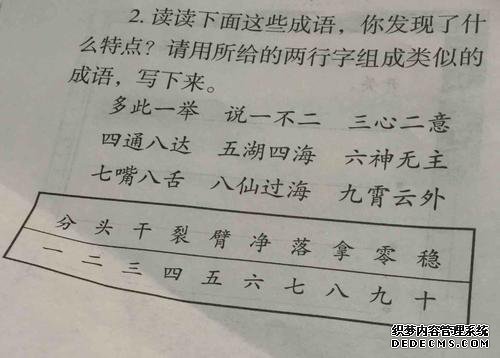 2. 读读下面这些成语，你发现了什
么特点？请用所给的两行字组成类似的
成语，写下来。
多此一举 说一不二 三心二意
四通八达 五湖四海 六神无主
七嘴八舌 八仙过海 九霄云外
分 头 干 裂 臂 净 落 拿 零 稳
一 二 三 四 五 六 七 八 九 十
织梦内容管理系统
DEDECMS.COM